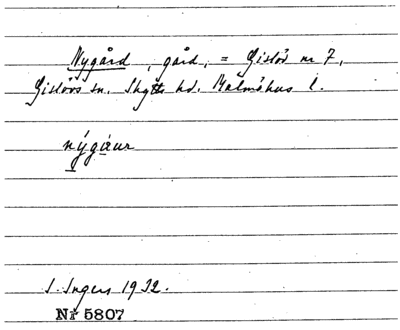 Nygård, gård, = Gislöv nr 7,
Gislövs sn. Skytts hd. Malmöhus l.
nýgáur
I. Ingers 1932.
Nr 5807